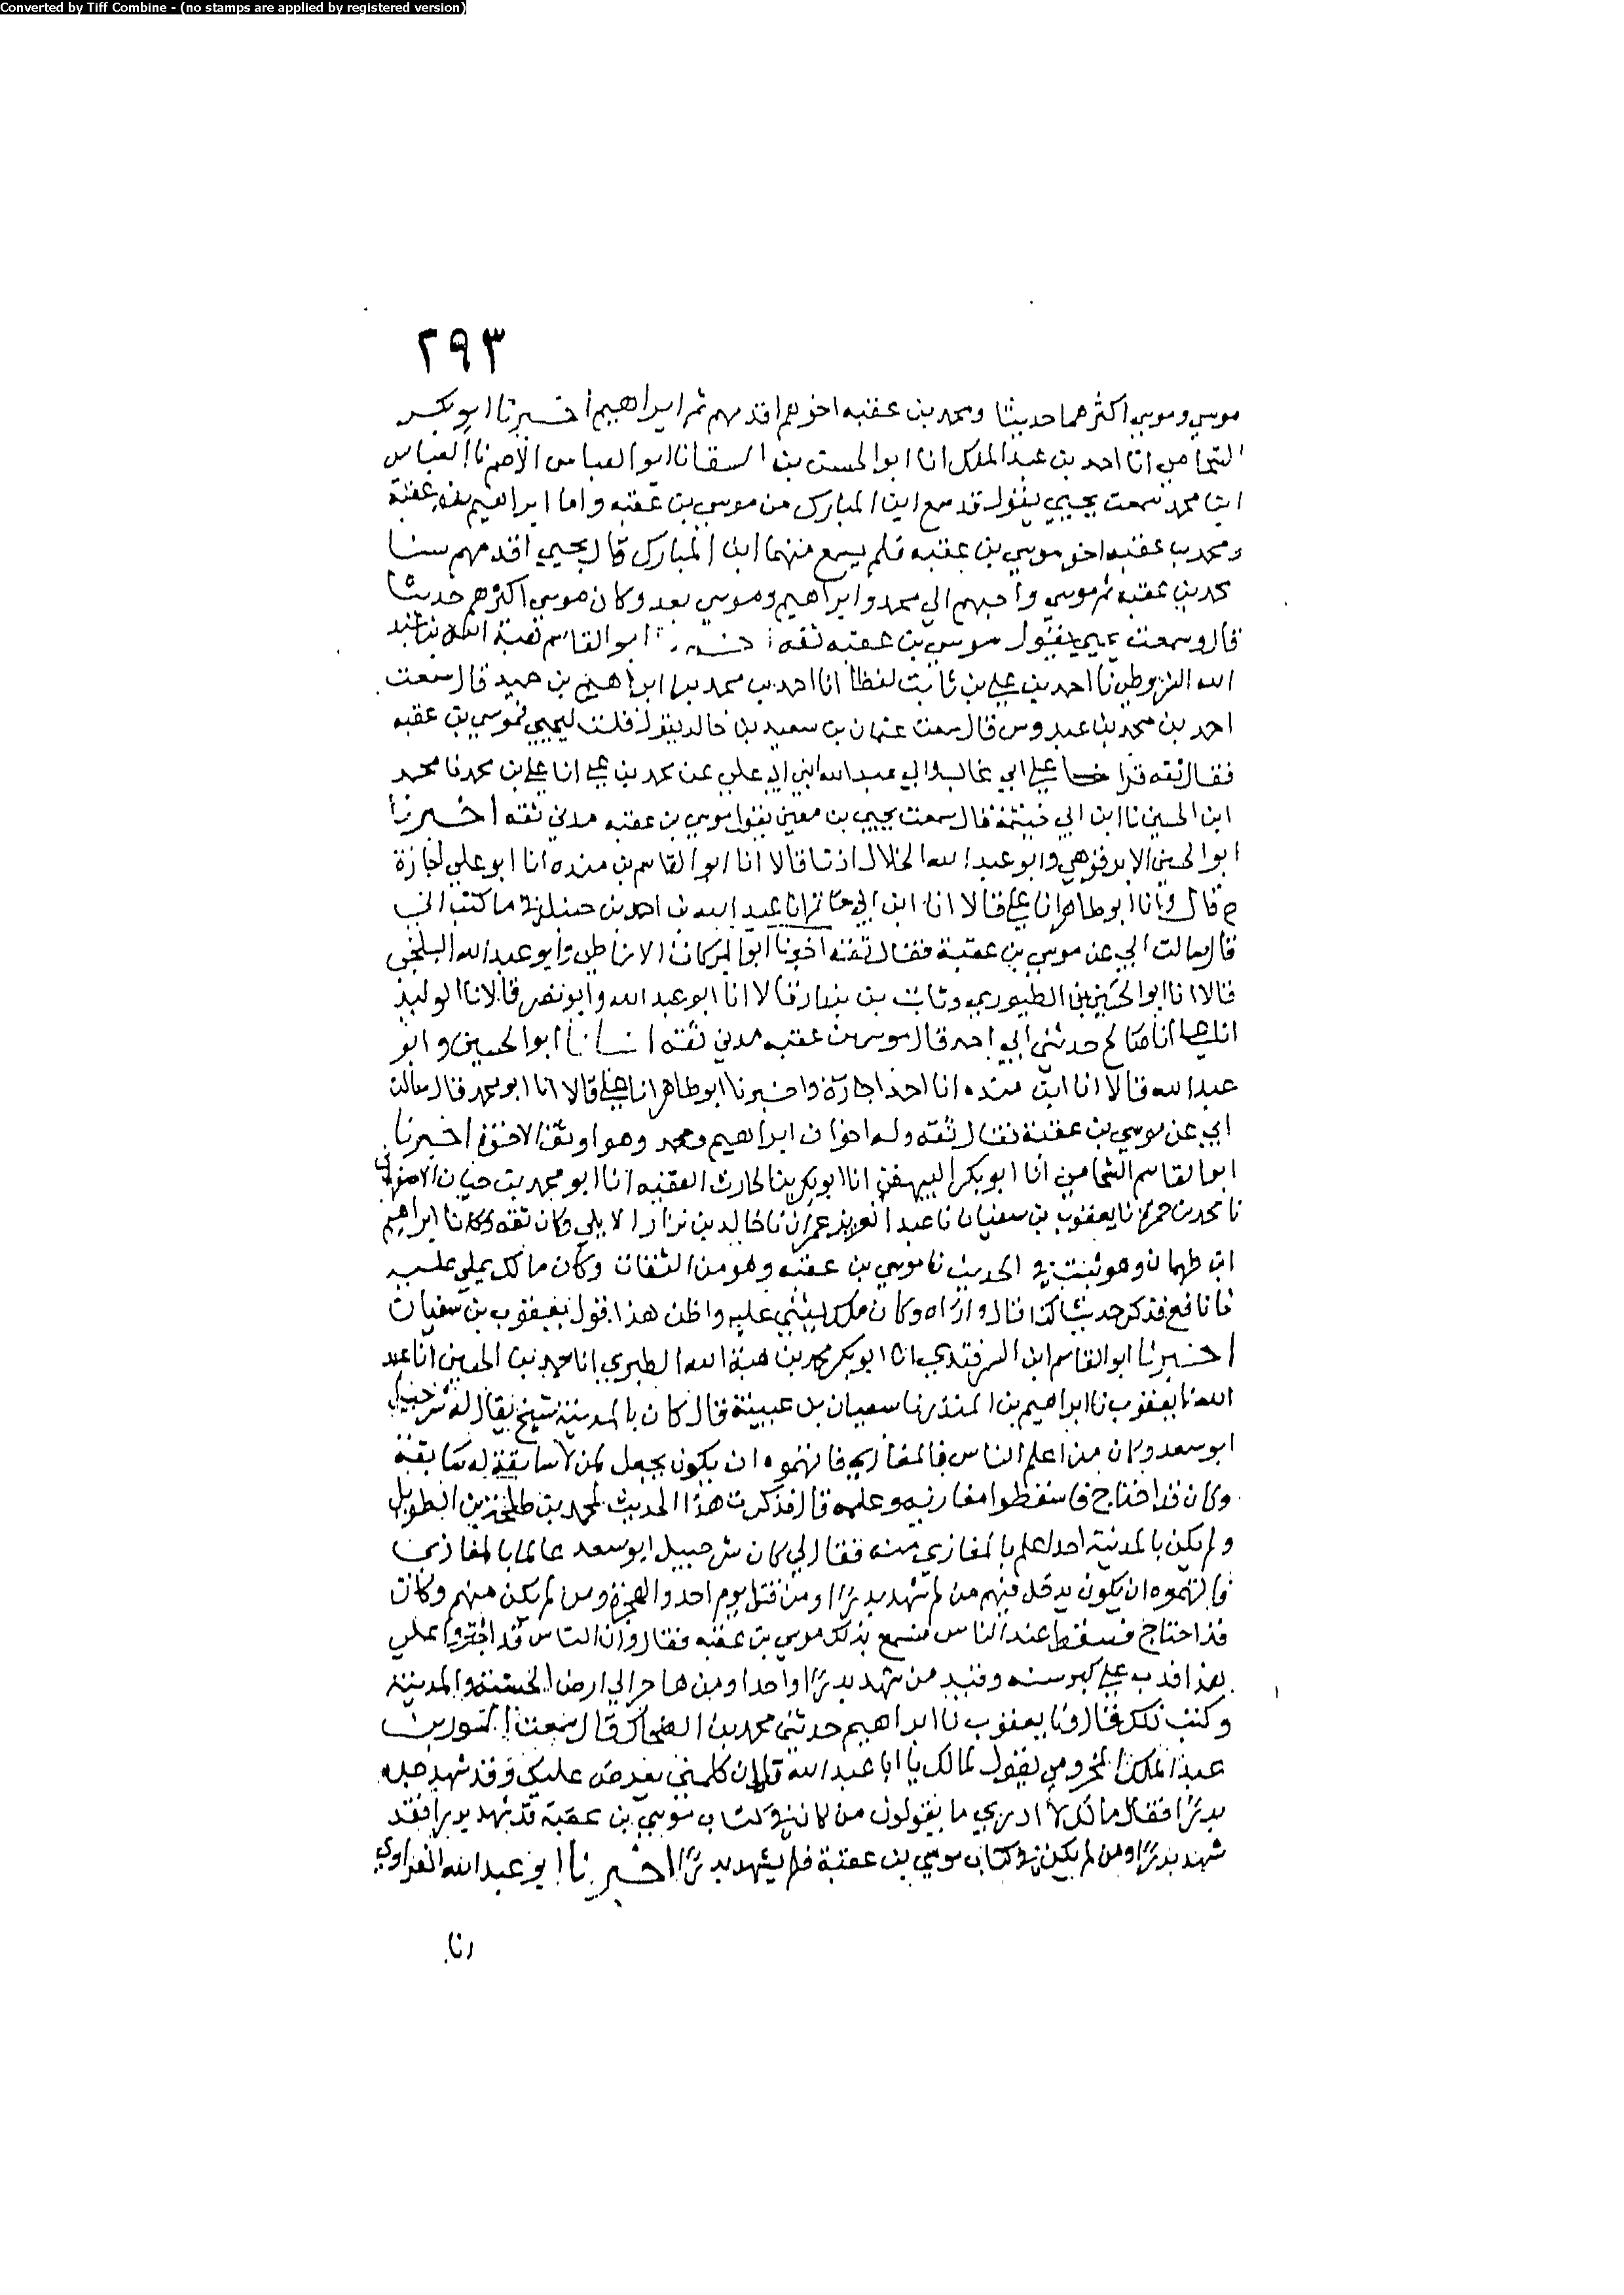 Converted by Tiff Combine - (no stamps are applied by registered version)
٢٩٣
موسي وموسي اكثرهما حديثا ومحمد بن عقبه اخوهم اقدمهم ثم ابراهيم اخبرنا ابو بكر
الشحامي انا احمد بن عبد الملك انا ابو الحسن بن السقا نا ابو العباس الاصم نا العباس
ابن محمد سمعت يحيي يقول قد سمع ابن المبارك من موسي بن عقبه واما ابراهيم بن عقبة
ومحمد بن عقبه اخو موسي بن عقبه فلم يسمع منهما ابن المبارك قال يحيي اقدمهم سنا
محمد بن عقبه ثم موسي واحبهم الي محمد وابراهيم وموسي بعد وكان موسي اكثرهم حديثا
قال وسمعت يحيي يقول موسي بن عقبه ثقه ابو القاسم هبة الله بن عبد
الله نا احمد بن علي بن ثابت لفظا انا احمد بن محمد بن ابراهيم بن حميد قال سمعت
احمد بن محمد بن عبدوس قال سمعت عثمان بن سعيد بن خالد يقول قلت ليحيي فموسي بن عقبه
فقال ثقه قرا علي ابي غالب وابي عبد الله ابني ابي علي عن محمد بن علي انا علي بن محمد نا محمد
ابن الحسين نا ابن ابي خيثمة قال سمعت يحيي بن معين يقول موسي بن عقبه مدني ثقه اخبرنا
ابو الحسين الابرقوهي وابو عبد الله الخلال اذنا قالا انا ابو القاسم بن منده انا ابو علي اجازة
ح قال وانا ابو طاهر انا علي قالا انا ابن ابي حاتم انا عبد الله بن احمد بن حنبل في ما كتب الي
قال سالت ابي عن موسي بن عقبة فقال ثقه اخبرنا ابو البركات الانماطي وابو عبد الله البلخي
قالا انا ابو الحسين بن الطيوري وثابت بن بندار قالا انا ابو عبد الله وابو نصر قالا نا الوليد
انا علي انا صالح حدثني ابي احمد قال موسي بن عقبه مدني ثقه انبانا ابو الحسين وابو
عبد الله قالا انا ابن منده انا احمد اجازة واخبرنا ابو طاهر انا علي قالا انا ابو محمد قال سالت
ابي عن موسي بن عقبة فقال ثقه وله اخوان ابراهيم ومحمد وهو اوثق الاخوة اخبرنا
ابو القاسم الشحامي انا ابو بكر البيهقي انا ابو بكر بن الحارث الفقيه انا ابو محمد بن حيان الاصفهاني
نا محمد بن حمزة نا يعقوب بن سفيان نا عبد العزيز عمران نا خالد بن نزار الايلي وكان ثقه وكان ابراهيم
ابن طهمان وهو ثبت في الحديث نا موسي بن عقبه وهو من الثقات وكان مالك يملي عليه
نا نافع فذكر حديثا كذا قال واراه وكان ملك يثني عليه واظن هذا قول يعقوب بن سفيان
اخبرنا ابو القاسم ابن السمرقندي انا ابو بكر محمد بن هبة الله الطبري انا محمد بن الحسين انا عبد
الله نا يعقوب نا ابراهيم بن المنذر نا سفيان بن عيينة قال كان بالمدينة شيخ يقال له شرحبيل
ابو سعد وكان من اعلم الناس بالمغازي فاتهموه ان يكون يجعل لمن لا سابقة له سابقة
وكان قد احتاج فاسقطوا مغازيه وعلمه قال فذكرت هذا الحديث لمحمد بن طلحة بن الطويل
ولم يكن بالمدينة احد اعلم بالمغازي منه فقال لي كان شرحبيل ابو سعد عالما بالمغازي
فاتهموه ان يكون يدخل فيهم من لم يشهد بدرا ومن قتل يوم احد والهجرة ومن لم يكن منهم وكان
قد احتاج فسقط عند الناس فسمع بذلك موسي بن عقبه فقال وان الناس قد اجتروا علي
هذا فدب علي كبر سنه وقيد من شهد بدرا واحدا ومن هاجر الي ارض الحبشة والمدينة
وكتب ذلك قال ونا يعقوب نا ابراهيم حدثني محمد بن الضحاك قال سمعت المسور بن
عبد الملك المخزومي يقول لمالك يا ابا عبد الله فلان كلمني يعرض عليك وقد شهد جده
بدرا فقال مالك لا ادري ما يقولون من كان في كتاب موسي بن عقبة قد شهد بدرا فقد
شهد بدرا ومن لم يكن في كتاب موسي بن عقبة فلم يشهد بدرا اخبرنا ابو عبد الله الفراوي
انا